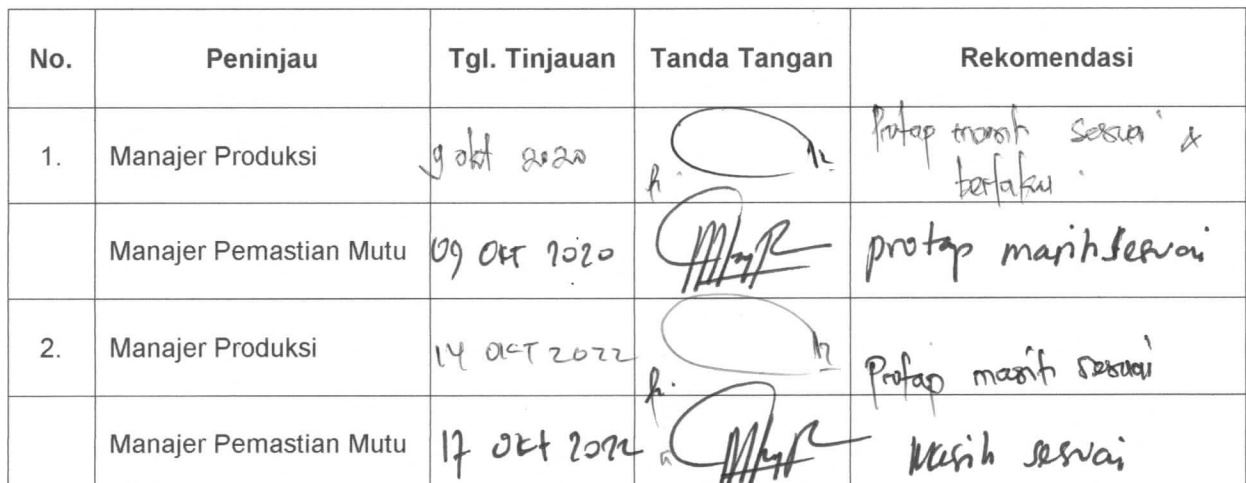 No. Peninjau Tgl. Tinjauan Tanda Tangan Rekomendasi
1. Manajer Produksi 9 okt 2020 Protap masih sesuai &
berlaku.
Manajer Pemastian Mutu 09 OKT 2020 protap masih sesuai
2. Manajer Produksi 14 OKT 2022 Protap masih sesuai
Manajer Pemastian Mutu 17 Okt 2022 Masih sesuai